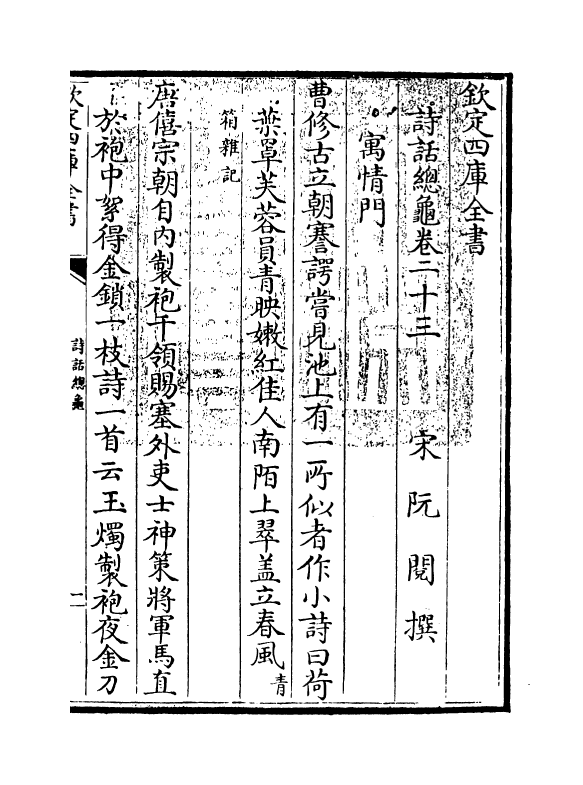 欽定四庫全書
詩話總龜卷二十三
宋 阮 閱 撰
寓情門
曹修古立朝謇諤嘗見池上有一所似者作小詩曰荷
葉罩芙蓉員青映嫩紅佳人南陌上翠盖立春風青
箱雜記
唐僖宗朝自内製袍千領賜塞外吏士神策將軍馬直
於袍中絮得金鎖一枝詩一首云玉燭製袍夜金刀
欽定四庫全書
詩話總龜
二